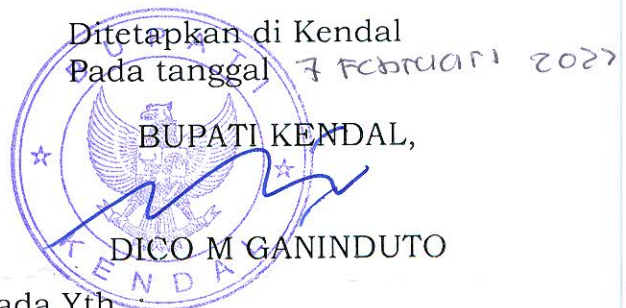 Ditetapkan di Kendal
Pada tanggal 7 Februari 2022
BUPATI KENDAL,
DICO M GANINDUTO
BUPATI
KENDAL
ada Yth